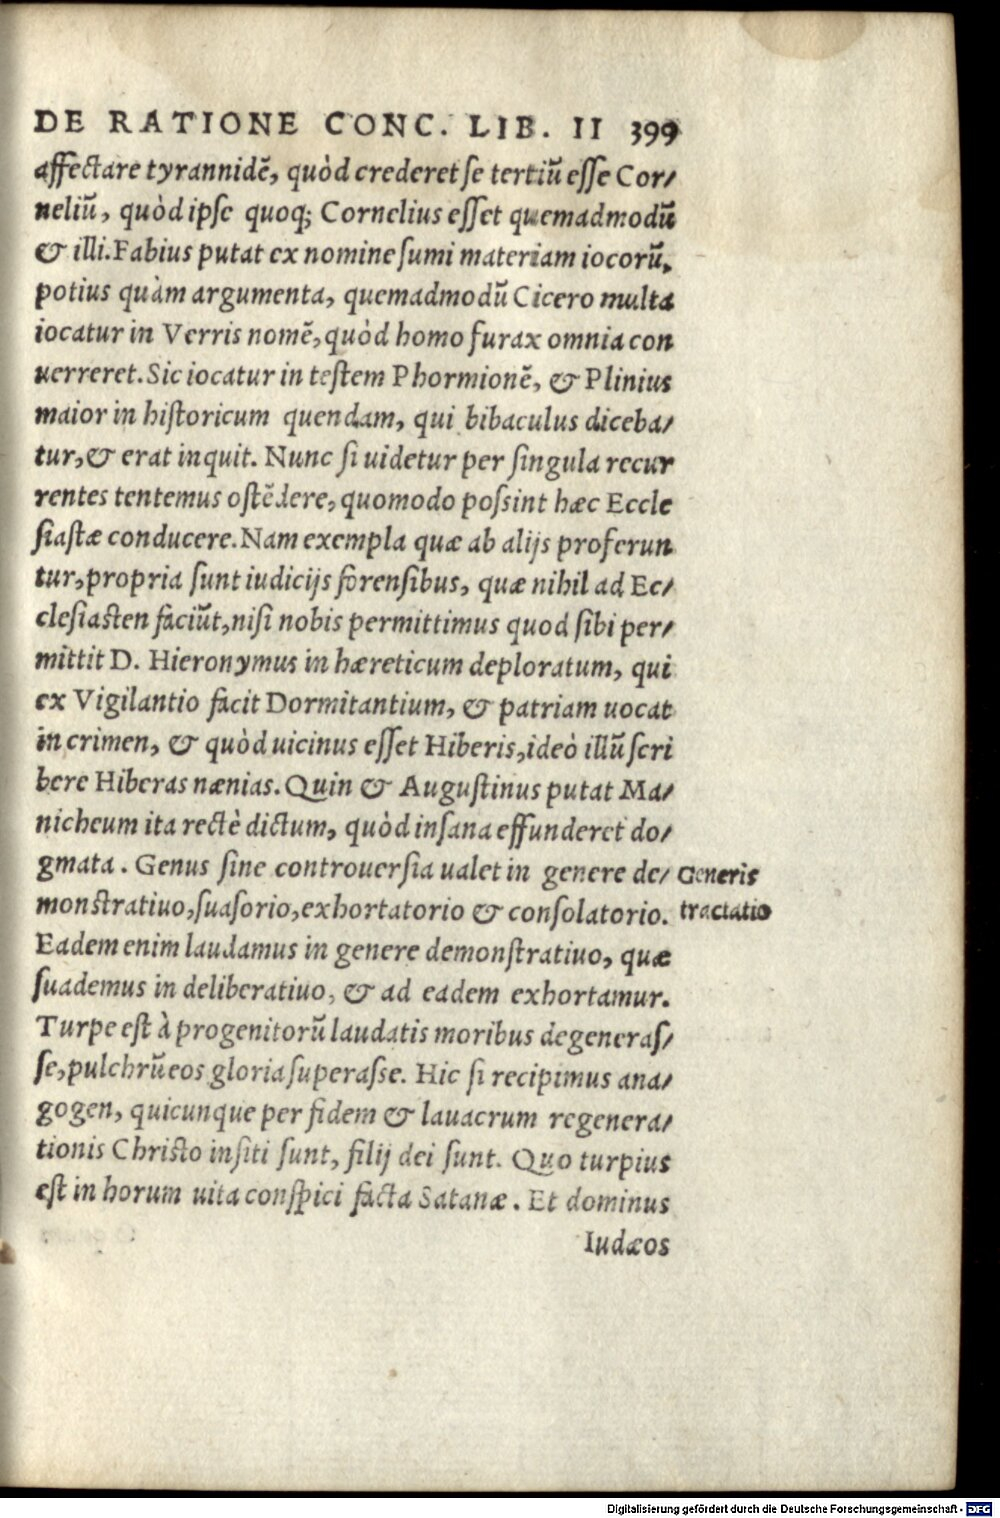 DE RATIONE CONC. LIB. II 399
affectare tyrannidē, quòd crederet se tertiū esse Cor/
neliū, quòd ipse quoq; Cornelius esset quemadmodū
& illi. Fabius putat ex nomine sumi materiam iocorū,
potius quàm argumenta, quemadmodū Cicero multa
iocatur in Verris nomē, quòd homo furax omnia con
uerreret. Sic iocatur in testem Phormionē, & Plinius
maior in historicum quendam, qui bibaculus diceba/
tur, & erat inquit. Nunc si uidetur per singula recur
rentes tentemus ostēdere, quomodo possint hæc Eccle
siastæ conducere. Nam exempla quæ ab alijs proferun
tur, propria sunt iudicijs forensibus, quæ nihil ad Ec/
clesiasten faciūt, nisi nobis permittimus quod sibi per/
mittit D. Hieronymus in hæreticum deploratum, qui
ex Vigilantio facit Dormitantium, & patriam uocat
in crimen, & quòd uicinus esset Hiberis, ideò illū scri
bere Hiberas nænias. Quin & Augustinus putat Ma/
nicheum ita rectè dictum, quòd insana effunderet do/
gmata. Genus sine controuersia ualet in genere de/ Generis
monstratiuo, suasorio, exhortatorio & consolatorio. tractatio
Eadem enim laudamus in genere demonstratiuo, quæ
suademus in deliberatiuo, & ad eadem exhortamur.
Turpe est à progenitorū laudatis moribus degeneras/
se, pulchrū eos gloria superasse. Hic si recipimus ana/
gogen, quicunque per fidem & lauacrum regenera/
tionis Christo insiti sunt, filij dei sunt. Quo turpius
est in horum uita conspici facta Satanæ. Et dominus
Iudæos
Digitalisierung gefördert durch die Deutsche Forschungsgemeinschaft - DFG